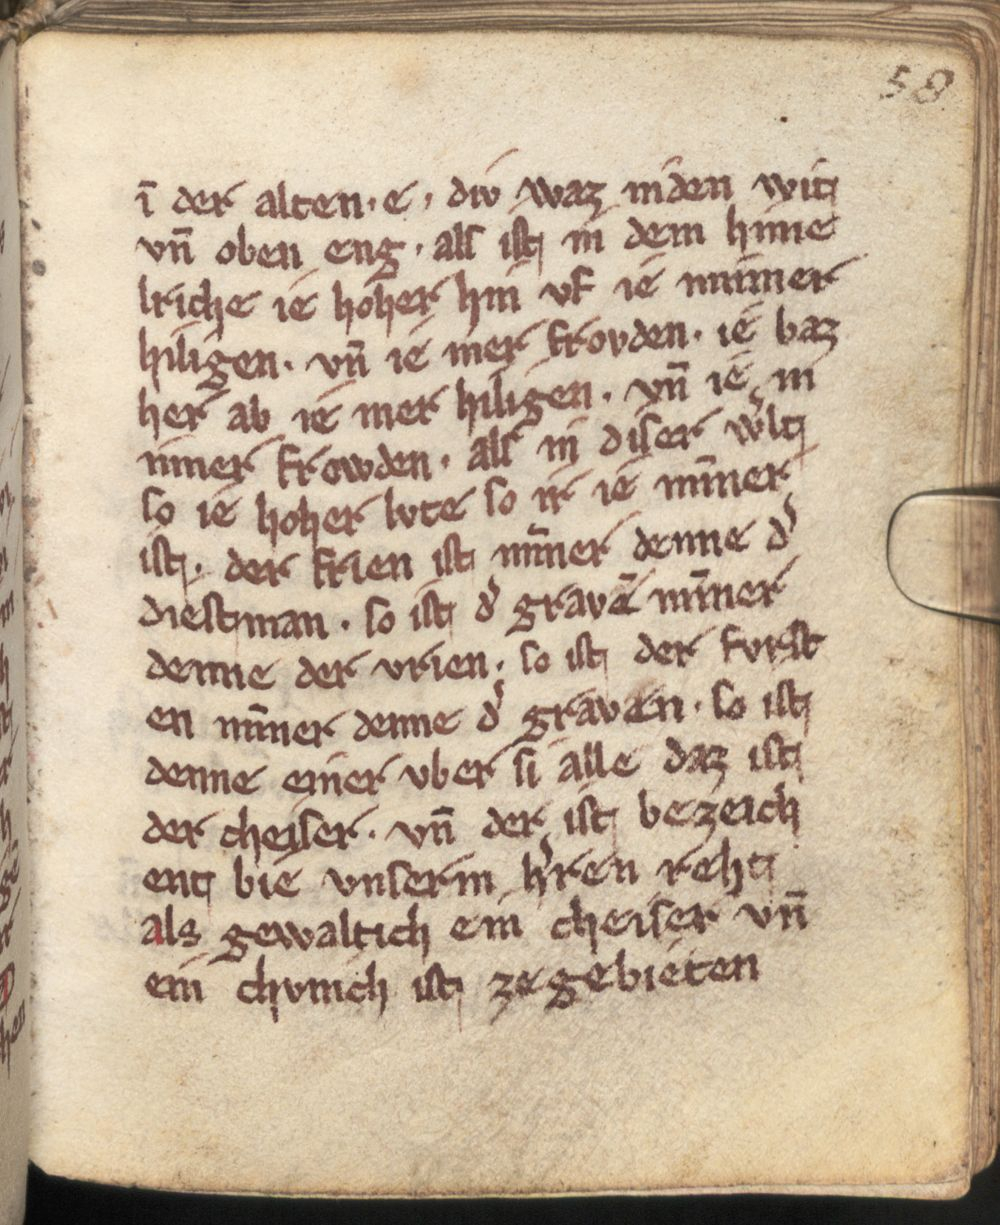 58
ī der alten · e · div waz niden wit
vn̄ oben eng · alſ iſt in dem hime
lriche ie hoher hin vf ie minner
hiligen · vn̄ ie mer frovden · ie baz
her ab ie mer hiligen · vn̄ ie mi
nner frowden · alſ in diſer w̓lt
ſo ie hoher lvte ſo ir ie miñer
iſt · der frien iſt miñer denne d̓
dieſtman · ſo iſt d̓ gravē miñer
denne der vrien · ſo iſt der fvrſt
en miñer denne d̓ graven · ſo iſt
denne einer vber ſi alle daz iſt
der cheiſer · vn̄ der iſt bezeich
ent bie vnſerm h̓ren reht
als gewaltich ein cheiſer vn̄
ein chvnich iſt ze gebieten